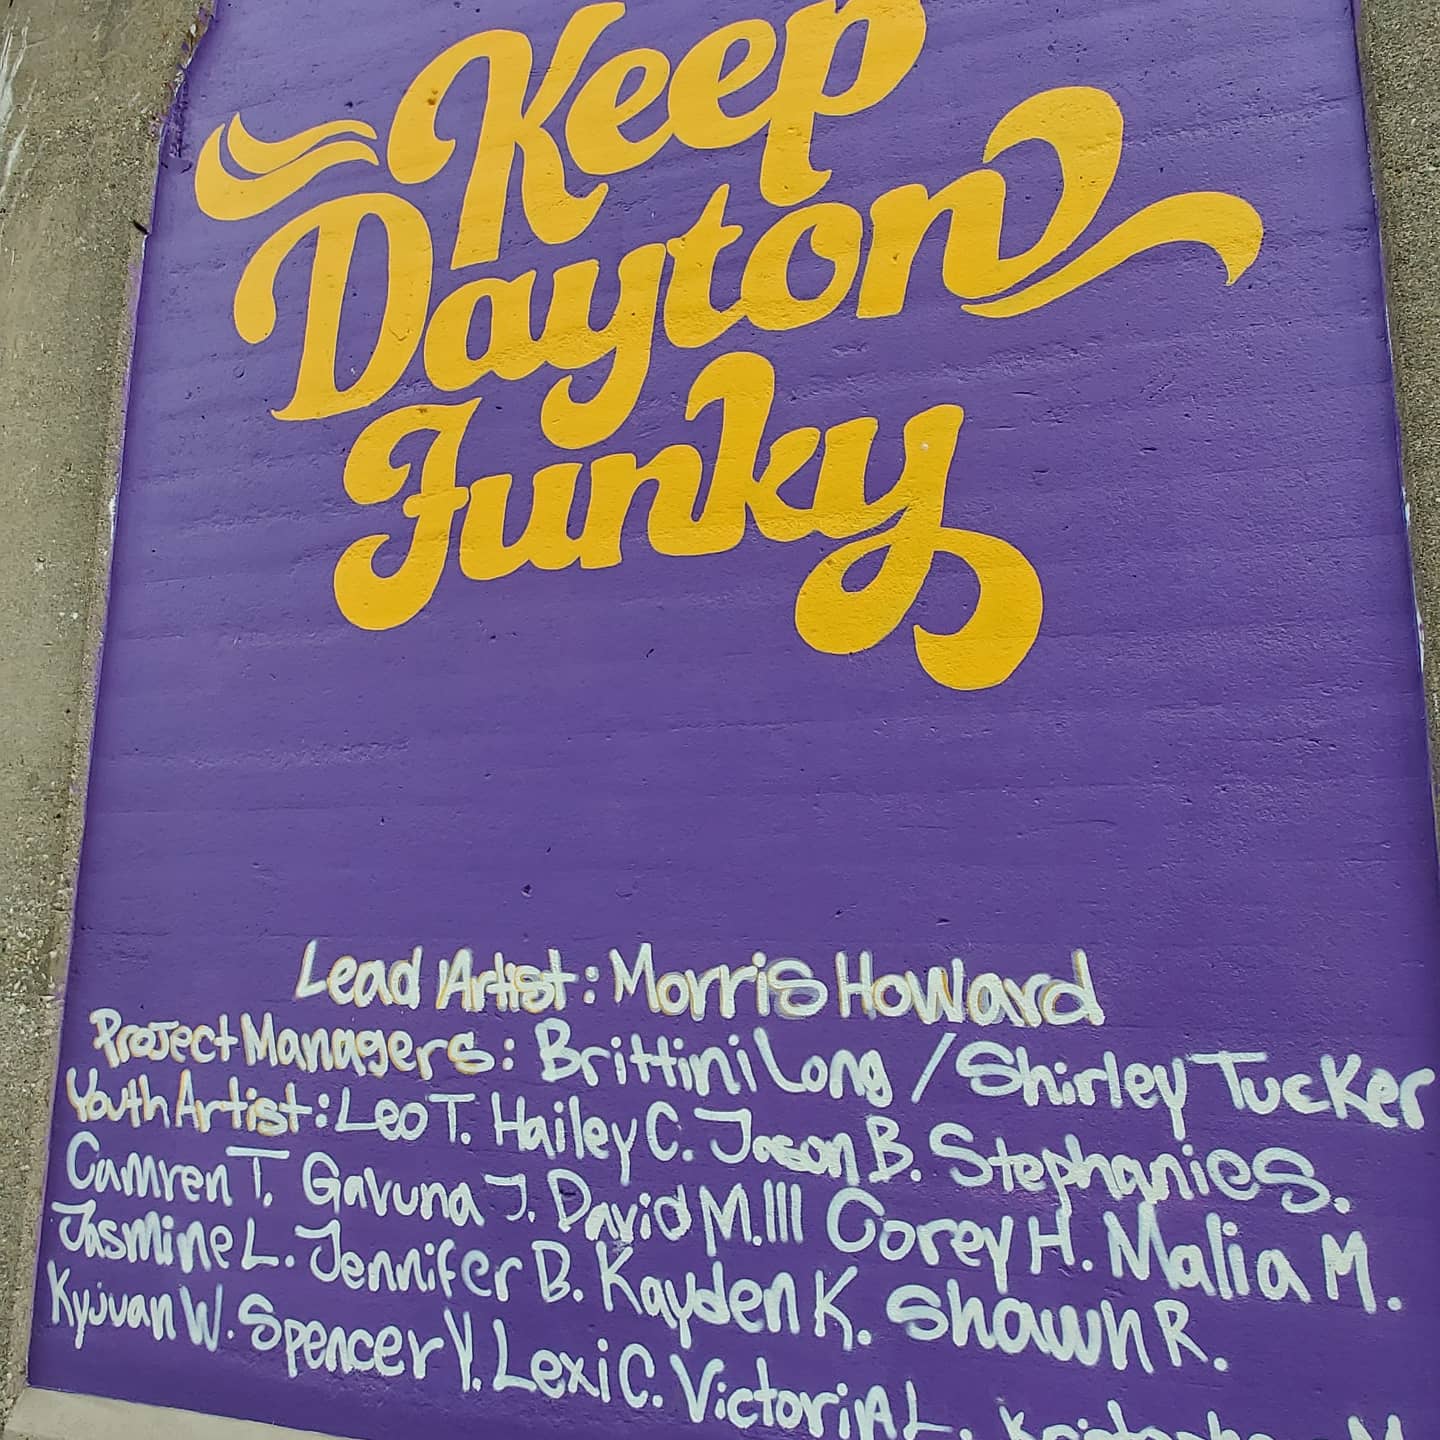 Keep
Dayton
Funky
Lead Artist: Morris Howard
Project Managers: Brittini Long / Shirley Tucker
Youth Artist: Leo T. Hailey C. Jason B. Stephanie S.
Camren T. Gavuna J. David M. III Corey H. Malia M.
Jasmine L. Jennifer B. Kayden K. Shawn R.
Kyjuan W. Spencer V. Lexi C. Victoria L.